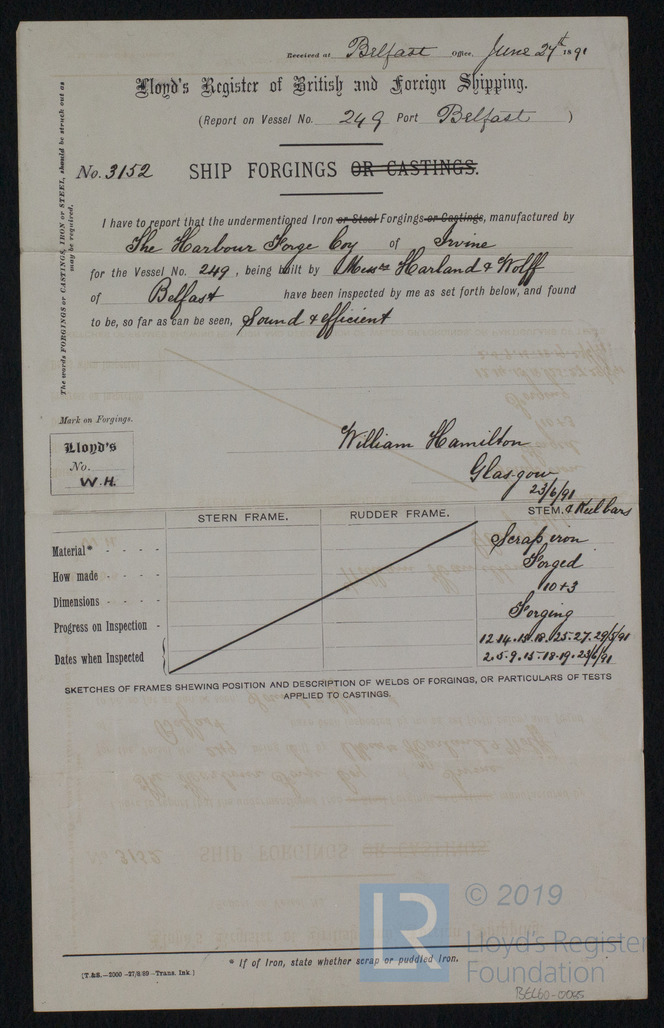 Received at Belfast Office, June 27th 1891
Lloyd's Register of British and Foreign Shipping.
(Report on Vessel No. 249 Port Belfast )
No. 3152 SHIP FORGINGS OR CASTINGS.
The words FORGINGS or CASTINGS, IRON or STEEL, should be struck out as
may be required.
I have to report that the undermentioned Iron or Steel Forgings or Castings, manufactured by
The Harbour Forge Coy of Irvine
for the Vessel No. 249, being built by Messrs Harland & Wolff
of Belfast have been inspected by me as set forth below, and found
to be, so far as can be seen, Sound & efficient
Mark on Forgings.
Lloyd's
No.
W.H.
William Hamilton
Glasgow
23/6/91
STERN FRAME. RUDDER FRAME. STEM. & Keel bars
Material* - - - - Scrap iron
How made - - - - Forged
Dimensions - - - - 10 + 3
Progress on Inspection - Forging
Dates when Inspected 12.14.15.18.25.27.29/5/91
2.5.9.15.18.19.23/6/91
SKETCHES OF FRAMES SHEWING POSITION AND DESCRIPTION OF WELDS OF FORGINGS, OR PARTICULARS OF TESTS
APPLIED TO CASTINGS.
LR
© 2019
Lloyd's Register
Foundation
* If of Iron, state whether scrap or puddled Iron.
[T.&S.—2000—27/8/89—Trans. Ink.]